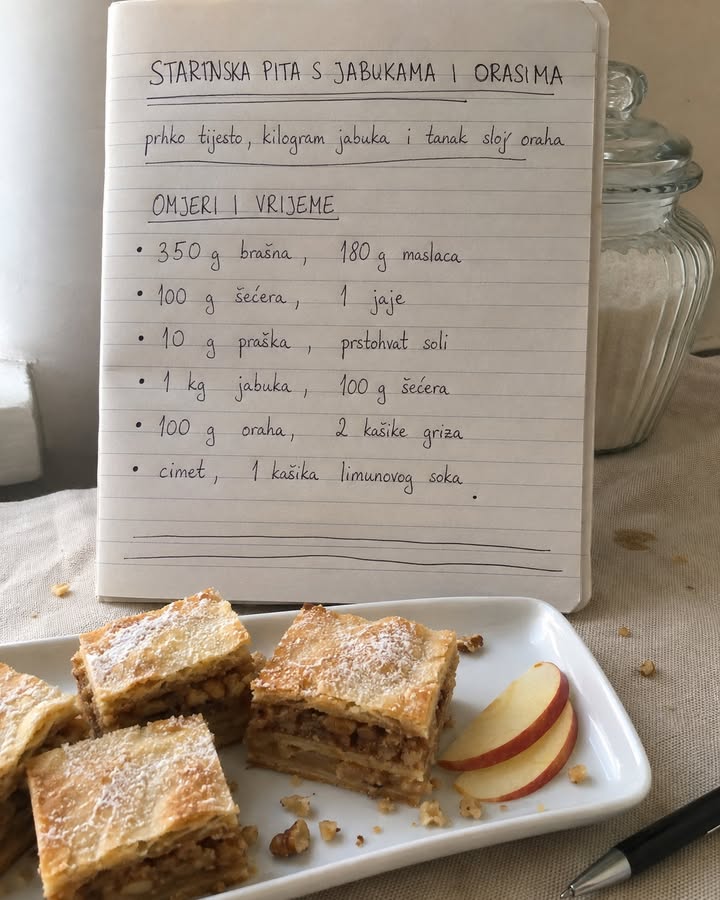 STARINSKA PITA S JABUKAMA I ORASIMA
prhko tijesto, kilogram jabuka i tanak sloj oraha
OMJERI I VRIJEME
• 350 g brašna, 180 g maslaca
• 100 g šećera, 1 jaje
• 10 g praška, prstohvat soli
• 1 kg jabuka, 100 g šećera
• 100 g oraha, 2 kašike griza
• cimet, 1 kašika limunovog soka.